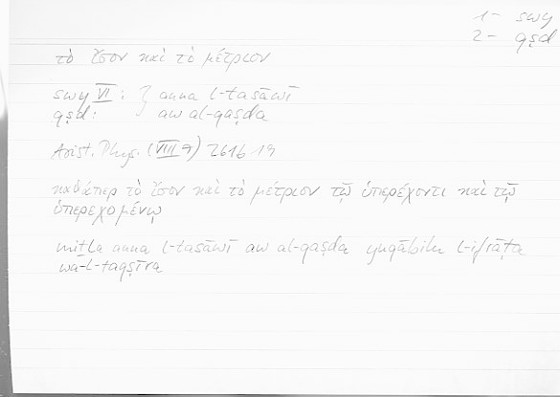 1- swy
2- qṣd
τὸ ἴσον καὶ τὸ μέτριον
swy VI: } anna l-tasāwī
qṣd: aw al-qaṣda
Arist. Phys. (VIII 7) 261b 19
καθάπερ τὸ ἴσον καὶ τὸ μέτριον τῷ ὑπερέχοντι καὶ τῷ
ὑπερεχομένῳ
mitla anna l-tasāwī aw al-qaṣda yuqābilu l-ifrāṭa
wa-l-taqṣīra